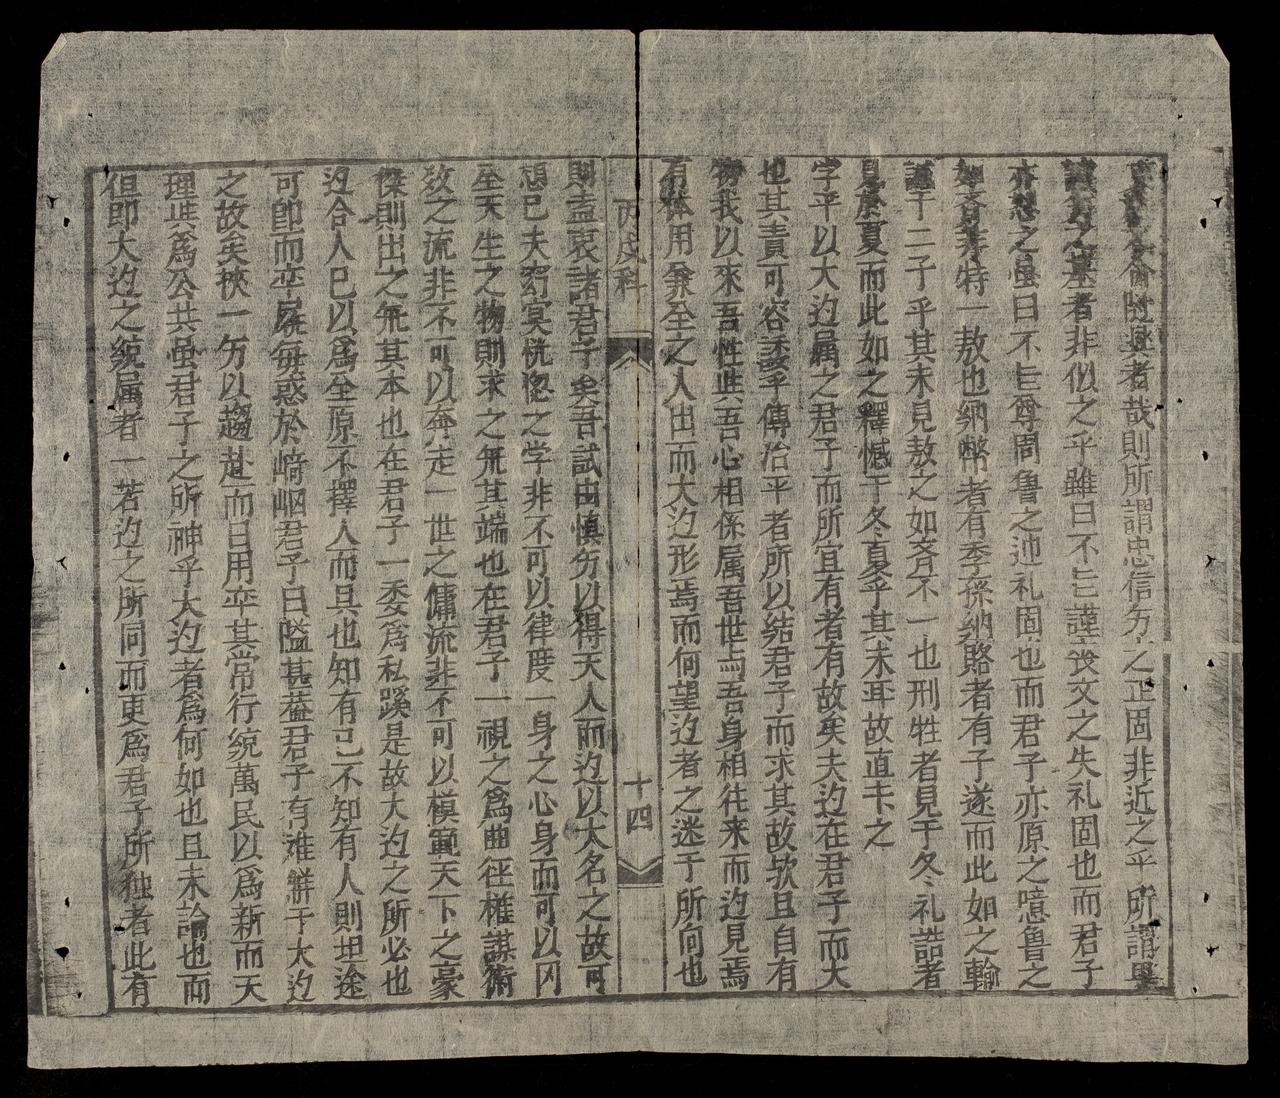 者哉則所謂忠信方之正固非近之乎所謂
之基者非似之乎雖曰不亡謹喪文之失礼固也而君子
亦恕之蛍曰不亡尊周魯之迹礼固也而君子亦原之噫魯之
如斉若特一敖也納幣者有季孫納賂者有子遂而此如之輸
謹于二子乎其未見敖之如斉不一也刑牲者見于冬礼誥者
見於夏而此如之釋憾于冬夏乎其未耳故直卞之
学平以大辺属之君子而所宜有者有故矣夫辺在君子而大
也其責可容諉乎傳治平者所以結君子而求其故欤且自有
物我以來吾性与吾心相係属吾世与吾身相往来而辺見焉
有体用兼全之人出而大辺形焉而何望辺者之迷于所向也
丙戌科
十四
則盍衷諸君子矣吾試由慎方以得天人而辺以大名之故可
想已夫窈冥恍惚之学非不可以律度一身之心身而可以冈
至天生之物則求之旡其端也在君子一視之爲曲径権謀術
效之流非不可以奔走一世之傭流非不可以模範天下之豪
傑則出之旡其本也在君子一委爲私蹊是故大辺之所必也
辺合人已以爲至原不擇人而具也知有己不知有人則坦途
可卽而卒屣每惑於﨑岖君子曰隘甚葢君子有难辭于大辺
之故矣挾一方以趨赴而日用卒其常行統萬民以爲新而天
理共爲公共蛍君子之所神乎大辺者爲何如也且未論也而
但即大辺之統属者一若辺之所同而更爲君子所独者此有